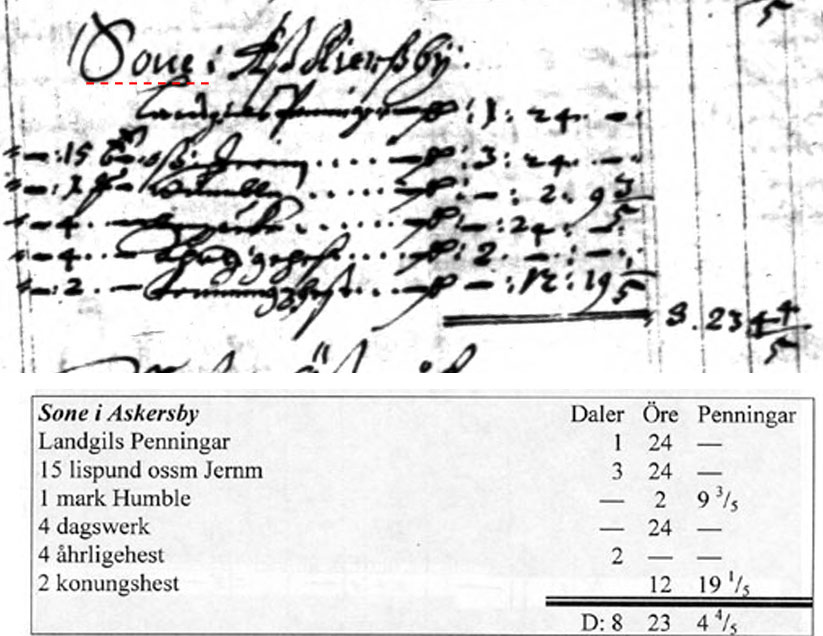 5
Sone i Asskierssbÿ:
Landgilds Penningar — D: 1: 24. —.
—: 15 ℔ ossm: Jernn..... — D: 3: 24. —.
—: 1 — Humble..... — D: —: 2. 9 3/5
— 4. — ..... — D: —: 24. —.
— 4. — ..... — D: 2. —: —:
—: 2. — konungshest.... — D: —: 12: 19 1/5
8. 23 4 4/5
Sone i Askersby Daler Öre Penningar
Landgils Penningar 1 24 —
15 lispund ossm Jernm 3 24 —
1 mark Humble — 2 9 3/5
4 dagswerk — 24 —
4 åhrligehest 2 — —
2 konungshest 12 19 1/5
D: 8 23 4 4/5